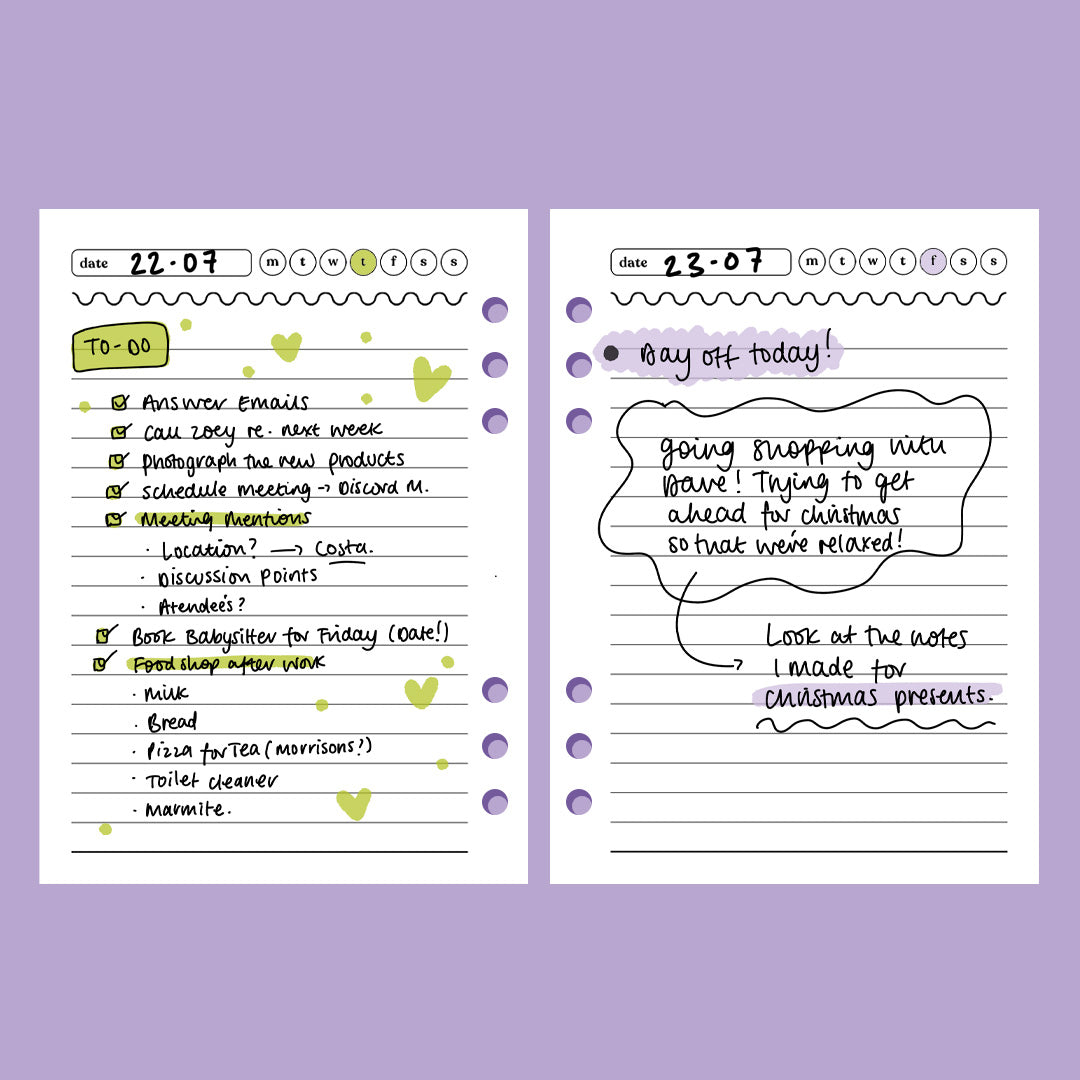 date 22-07 m t w t f s s
TO-DO
Answer Emails
Call Zoey re. next week
photograph the new products
schedule meeting → Discord M.
Meeting Mentions
· Location? → Costa.
· Discussion Points
· Atendee's?
Book Babysitter for Friday (Date!)
Food shop after work
· Milk
· Bread
· Pizza for Tea (Morrisons?)
· Toilet cleaner
· Marmite.
date 23-07 m t w t f s s
Day off today!
going shopping with
Dave! Trying to get
ahead for christmas
so that we're relaxed!
Look at the notes
I made for
christmas presents.